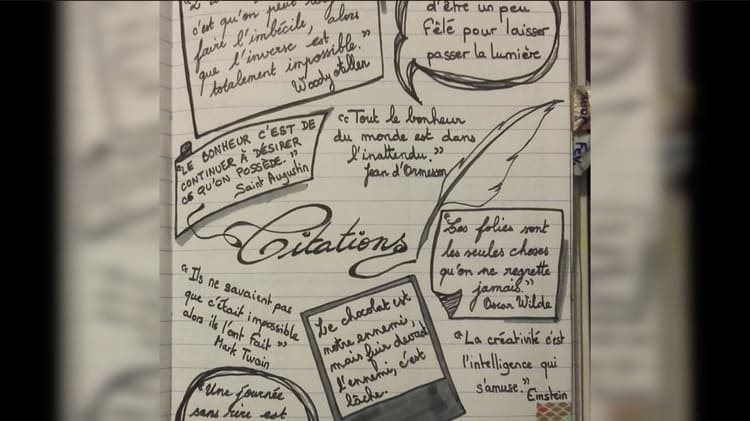 c'est qu'on peut
faire l'imbécile, alors
que l'inverse est
totalement impossible."
Woody Allen
d'être un peu
fêlé pour laisser
passer la lumière
"LE BONHEUR C'EST DE
CONTINUER À DÉSIRER
CE QU'ON POSSÈDE."
Saint Augustin
"Tout le bonheur
du monde est dans
l'inattendu."
Jean d'Ormesson
Citations
"Les folies sont
les seules choses
qu'on ne regrette
jamais."
Oscar Wilde
"Ils ne savaient pas
que c'était impossible
alors ils l'ont fait"
Mark Twain
Le chocolat est
notre ennemi,
mais fuir devant
l'ennemi, c'est
lâche.
"La créativité c'est
l'intelligence qui
s'amuse."
Einstein
"Une journée
sans rire est